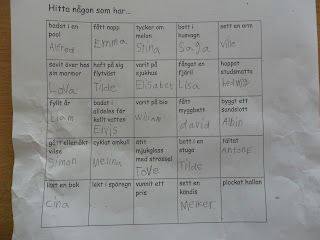 Hitta någon som har...
badat i en pool
Alfred
fått napp
Emma
tycker om melon
Stina
bott i husvagn
Saga
sett en orm
Ville
sovit över hos sin mormor
Lova
haft på sig flytväst
Tilde
varit på sjukhus
Elisabet
fångat en fjäril
Lisa
hoppat studsmatta
hedwig
fyllt år
Liam
badat i alldeles för kallt vatten
Elvis
varit på bio
wiliam
fått myggbett
david
byggt ett sandslott
Albin
gått eller åkt vilse
Simon
cyklat omkull
Melina
ätit mjukglass med strössel
Tove
bott i en stuga
Tilde
tältat
Antone
läst en bok
Cina
lekt i spöregn
vunnit ett pris
sett en kändis
Melker
plockat hallon